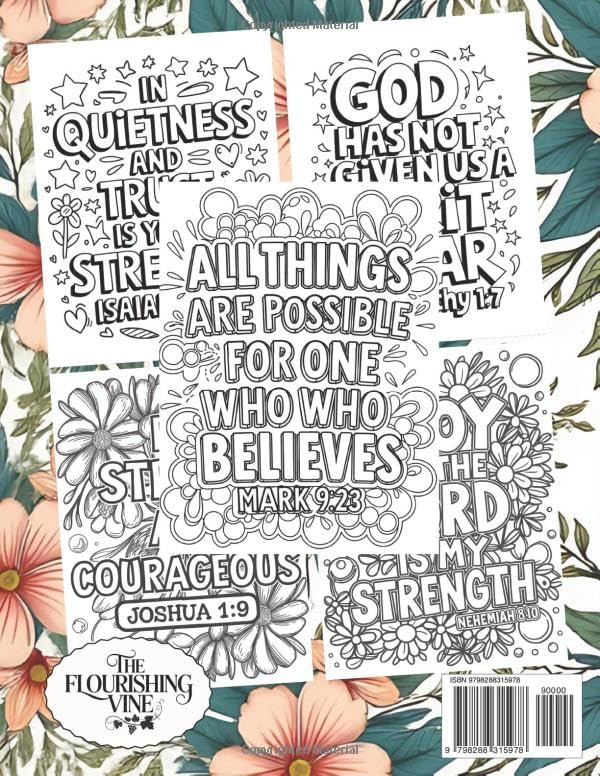 Copyrighted Material
IN
QUiETNESS
AND
TRUST
IS YO
STRE
ISAIA
GOD
HAS NOT
GiVEN US A
iT
AR
thy 1:7
ALL THINGS
ARE POSSIBLE
FOR ONE
WHO WHO
BELIEVES
MARK 9:23
ST
COURAGEOUS
JOSHUA 1:9
OY
HE
RD
IS MY
STRENGTH
NEHEMIAH 8:10
THE
FLOURISHING
VINE
ISBN 9798288315978
90000
9 798288 315978
Copyrighted Material